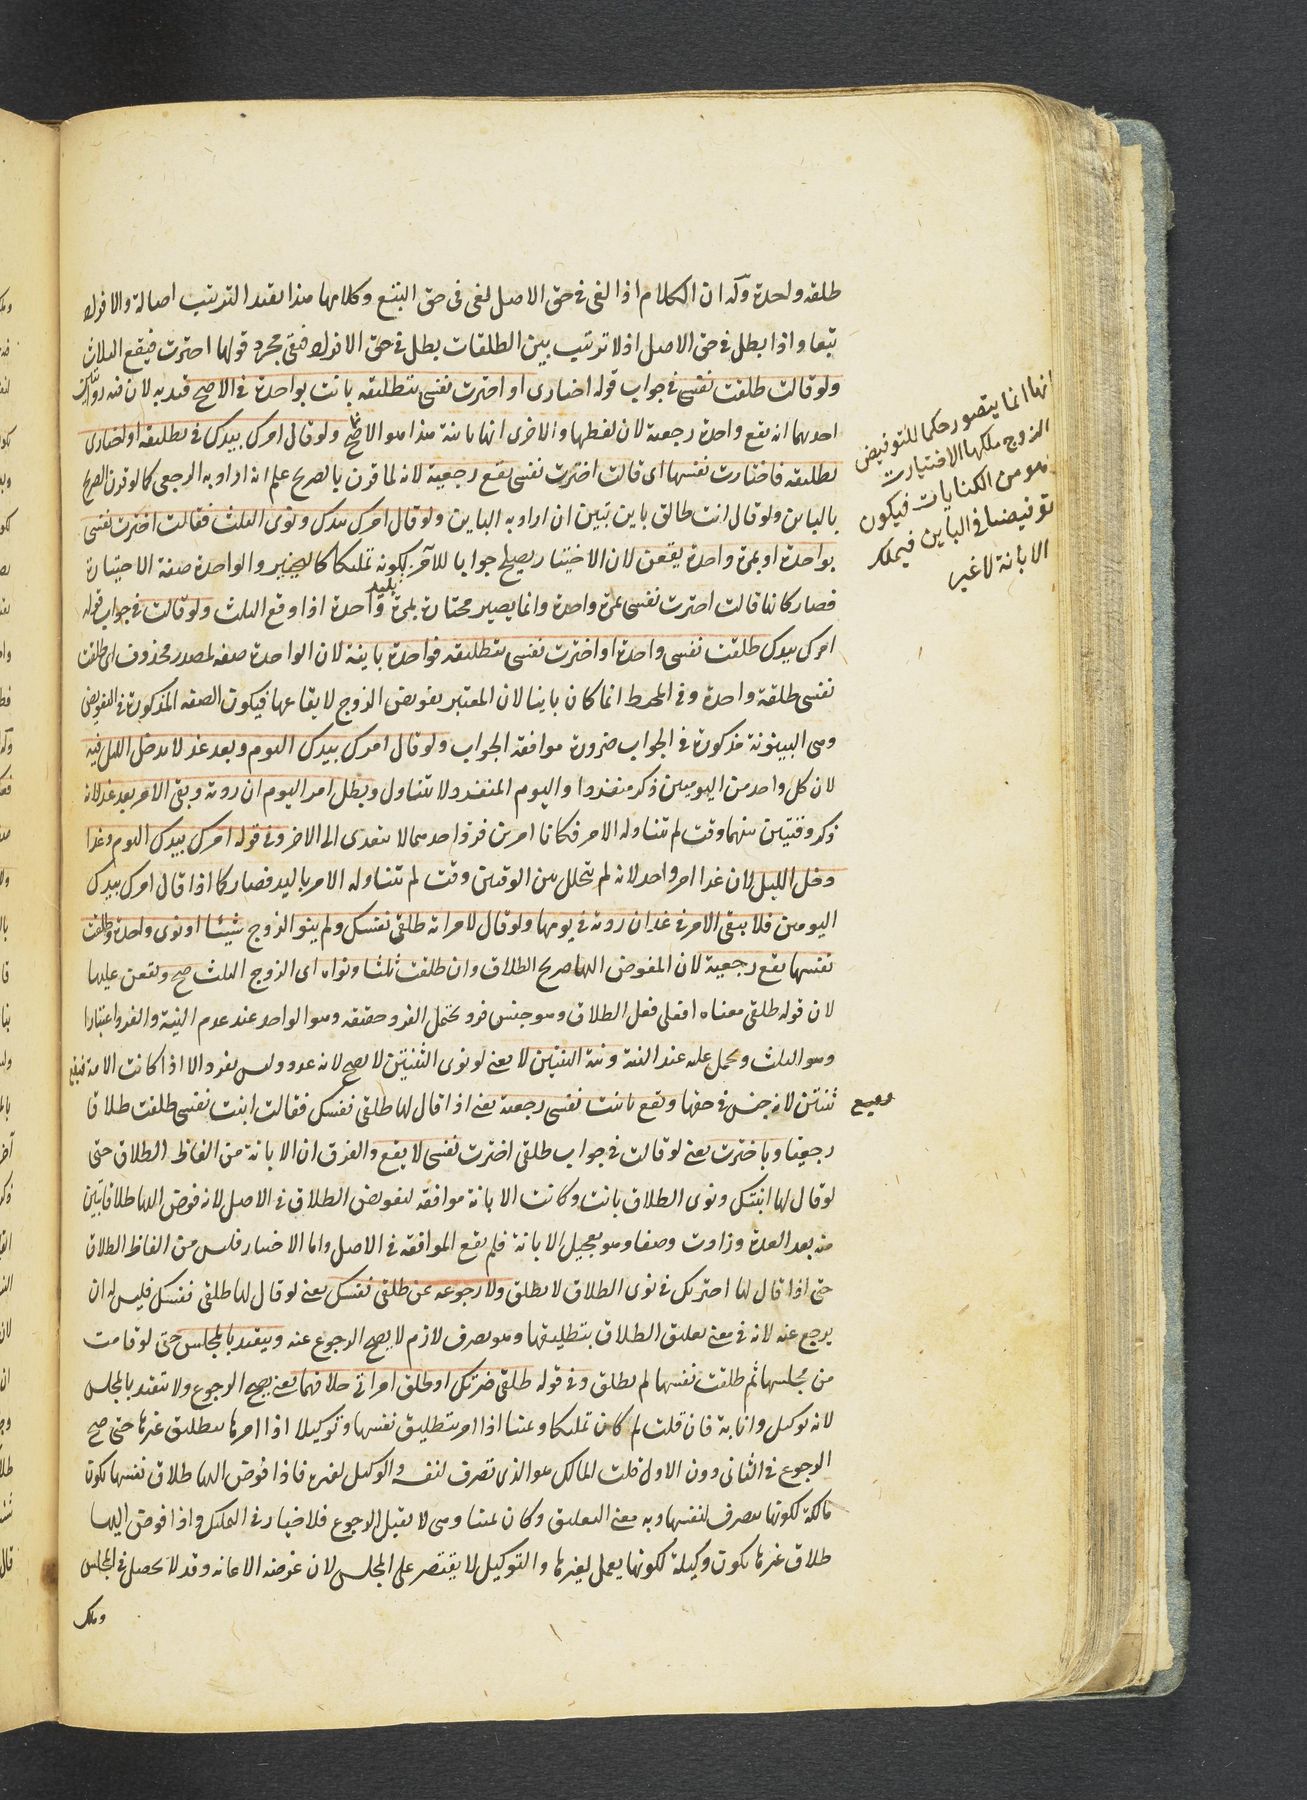 طلقة واحدة وله ان الكلام اذا لغى فى حق الاصل لغى فى حق التبع وكلامها هذا يفيد الترتيب اصالة والافراد
تبعا واذا بطل فى حق الاصل اذ لا ترتيب بين الطلقات بطل فى حق الافراد فبقى مجرد قولها اخترت فيقع الثلاث
ولو قالت طلقت نفسى فى جواب قوله اختارى او اخترت نفسى بتطليقة بانت بواحدة فى الاصح قيد به لان فيه روايتين
احديهما انه يقع واحدة رجعية لان لفظها والاخرى انها بائنة هذا هو الاصح ولو قال امرك بيدك فى تطليقة او اختارى
تطليقة فاختارت نفسها اى قالت اخترت نفسى يقع رجعية لانه لما قرن بالصريح علم انه اراد به الرجعى كما لو قرن الصريح
بالباين ولو قال انت طالق باين تبين ان اراد به الباين ولو قال امرك بيدك ونوى الثلث فقالت اخترت نفسى
بواحدة او بمرة واحدة يقعن لان الاختيار يصلح جوابا للامر لكونه تمليكا كالتخيير والواحدة صفة الاختيارة
فصار كانها قالت اخترت نفسى بمرة واحدة وانما يصير مختارة بمرة واحدة اذا وقع الثلث ولو قالت فى جواب قوله
امرك بيدك طلقت نفسى واحدة او اخترت نفسى بتطليقة فواحدة باينة لان الواحدة صفة لمصدر محذوف اى طلقت
نفسى طلقة واحدة وفى المحيط انما كان باينا لان المعتبر تفويض الزوج لا ايقاعها فيكون الصفة المذكورة فى التفويض
وهى البينونة مذكورة فى الجواب ضرورة موافقة الجواب ولو قال امرك بيدك اليوم وبعد غد لا يدخل الليل فيه
لان كل واحد من اليومين ذكر منفردا واليوم المنفرد لا يتناول ويبطل امر اليوم ان ردته وبقى الامر بعد غد لانه
ذكر وقتين بينهما وقت لم يتناوله الامر فكانا امرين فرد احدهما لا يتعدى الى الاخر وفى قوله امرك بيدك اليوم وغدا
دخل الليل لان غدا امر واحد لانه لم يتخلل بين الوقتين وقت لم يتناوله الامر باليد فصار كما اذا قال امرك بيدك
اليومين فلا يبقى الامر فى غد ان ردته فى يومها ولو قال لامراته طلقى نفسك ولم ينو الزوج شيئا او نوى واحدة وطلقت
نفسها يقع رجعية لان المفوض اليها صريح الطلاق وان طلقت ثلثا ونواه اى الزوج الثلث صح وتقعن عليها
لان قوله طلقى معناه افعلى فعل الطلاق وهو جنس فرد يحتمل الفرد حقيقة وهو الواحد عند عدم النية والفرد اعتبارا
وهو الثلث ويحمل عليه عند النية ونية الثنتين لا يعنى لو نوى الثنتين لا يصح لانه عدد وليس بفرد الا اذا كانت الامة فيقع
ثنتين لانه جنس فى حقها ويقع بابنت نفسى رجعية يعنى اذا قال لها طلقى نفسك فقالت ابنت نفسى طلقت طلاقا
رجعيا وباخترت يعنى لو قالت فى جواب طلقى اخترت نفسى لا يقع والفرق ان الابانة من الفاظ الطلاق حتى
لو قال لها ابنتك ونوى الطلاق بانت وكانت الابانة موافقة لتفويض الطلاق فى الاصل لانه فوض اليها طلاقا تبين
منه بعد العدة وزادت وصفا وهو تعجيل الابانة فلم يقع الموافقة فى الاصل واما الاختيار فليس من الفاظ الطلاق
حتى اذا قال لها اخترتك فى نوى الطلاق لا يطلق ولا رجوعه عن طلقى نفسك يعنى لو قال لها طلقى نفسك فليس له ان
يرجع عنه لانه فى معنى تعليق الطلاق بتطليقها وهو تصرف لازم لا يصح الرجوع عنه ويتقيد بالمجلس حتى لو قامت
من مجلسها ثم طلقت نفسها لم يطلق وفى قوله طلقى ضرتك او طلق امراتى خلافهما يعنى يصح الرجوع ولا تتقيد بالمجلس
لانه توكيل وانابة فان قلت لم كان تمليكا و يمينا اذا امر بتطليق نفسها وتوكيلا اذا امرها بتطليق غيرها حتى صح
الرجوع فى الثانى دون الاول قلت المالك هو الذى تصرف لنفسه والوكيل لغيره فاذا فوض اليها طلاق نفسها تكون
مالكة لكونها تتصرف لنفسها وبه معنى التعليق وكان يمينا وهى لا تقبل الرجوع فلا خيار فى التمليك واذا فوض اليها
طلاق غيرها تكون وكيلة لكونها يعمل لغيرها والتوكيل لا يقتصر على المجلس لان غرضه الاعانة وقد لا يحصل فى المجلس
وملك
انها انما يتصور حكما للتفويض
الزوج ملكها الاختيارت
وهو من الكنايات فيكون
تفويضا فى الباين فيملك
الابانة لا غير